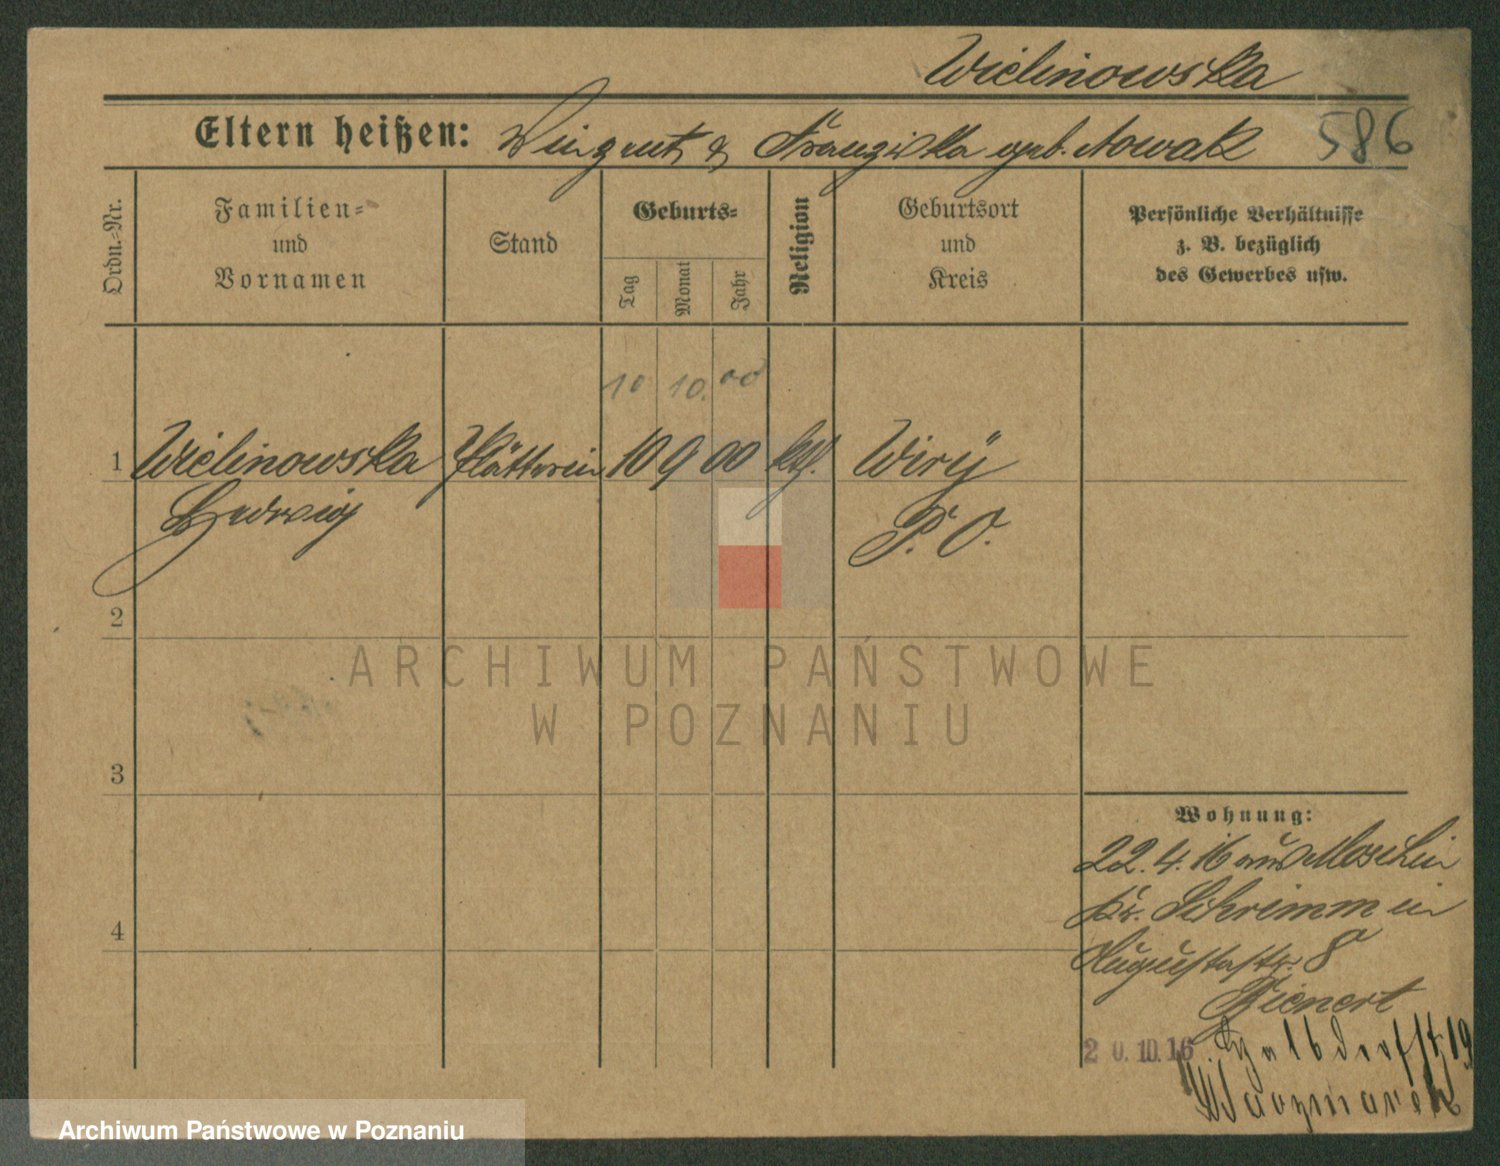 Wielinowska
Eltern heißen: Vinzent & Franziska geb. Nowak 586
Ordn.-Nr.
Familien-
und
Vornamen
Stand
Geburts-
Tag
Monat
Jahr
Religion
Geburtsort
und
Kreis
Persönliche Verhältnisse
z. B. bezüglich
des Gewerbes usw.
10 10. 00
1 Wielinowska Plätterin 10 9 00 kth. Wiry
Hedwig P. O.
2
3
4
Wohnung:
22. 4. 16 aus Moschin
Kr. Schrimm in
Augustastr. 8
Bienert
20.10.16. Halbdorfstr 19
Kaczmarek
ARCHIWUM PAŃSTWOWE
W POZNANIU
Archiwum Państwowe w Poznaniu